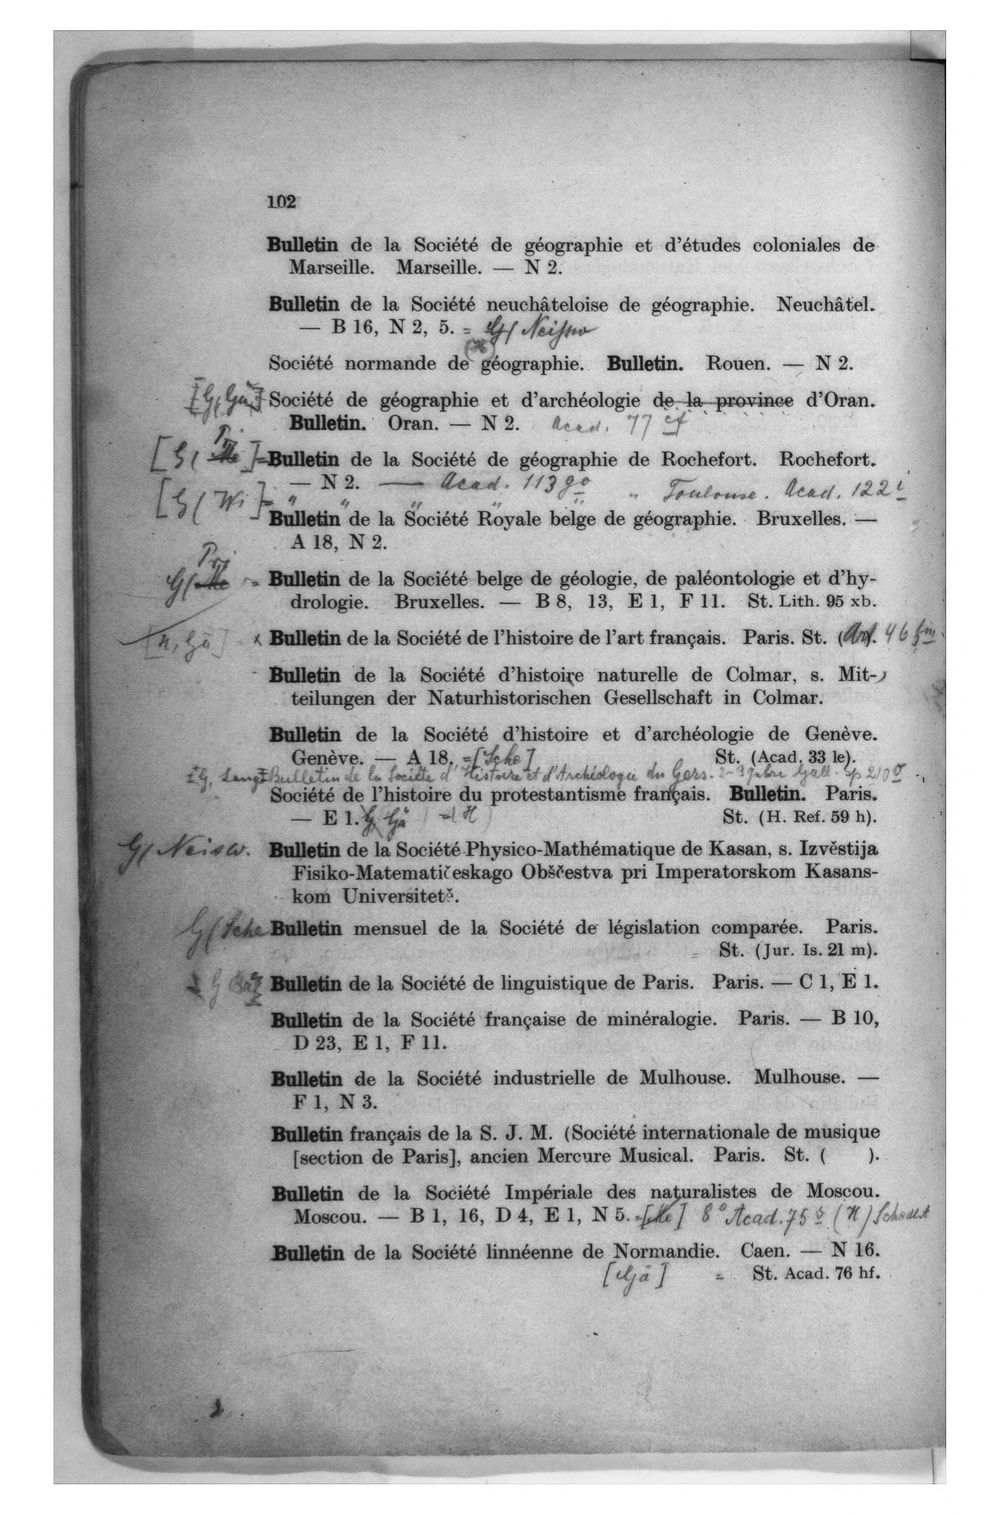 102
Bulletin de la Société de géographie et d'études coloniales de
Marseille. Marseille. — N 2.
Bulletin de la Société neuchâteloise de géographie. Neuchâtel.
— B 16, N 2, 5. = G(
Société normande de géographie. Bulletin. Rouen. — N 2.
Société de géographie et d'archéologie de la province d'Oran.
Bulletin. Oran. — N 2. Acad. 77 cf
Bulletin de la Société de géographie de Rochefort. Rochefort.
— N 2. — Acad. 113 go " Toulouse. Acad. 122 i
[G( Wi]= " " " "
Bulletin de la Société Royale belge de géographie. Bruxelles. —
A 18, N 2.
Bulletin de la Société belge de géologie, de paléontologie et d'hy-
drologie. Bruxelles. — B 8, 13, E 1, F 11. St. Lith. 95 xb.
Bulletin de la Société de l'histoire de l'art français. Paris. St. (Art. 46 fm
Bulletin de la Société d'histoire naturelle de Colmar, s. Mit-
teilungen der Naturhistorischen Gesellschaft in Colmar.
Bulletin de la Société d'histoire et d'archéologie de Genève.
Genève. — A 18. =[Sche] St. (Acad. 33 le).
Bulletin de la Société d'Histoire et d'Archéologie du Gers.
Société de l'histoire du protestantisme français. Bulletin. Paris.
— E 1. St. (H. Ref. 59 h).
G( Neisw. Bulletin de la Société Physico-Mathématique de Kasan, s. Izvěstija
Fisiko-Matematičeskago Obščestva pri Imperatorskom Kasans-
kom Universitetě.
G( Sche Bulletin mensuel de la Société de législation comparée. Paris.
St. (Jur. Is. 21 m).
Bulletin de la Société de linguistique de Paris. Paris. — C 1, E 1.
Bulletin de la Société française de minéralogie. Paris. — B 10,
D 23, E 1, F 11.
Bulletin de la Société industrielle de Mulhouse. Mulhouse. —
F 1, N 3.
Bulletin français de la S. J. M. (Société internationale de musique
[section de Paris], ancien Mercure Musical. Paris. St. ( ).
Bulletin de la Société Impériale des naturalistes de Moscou.
Moscou. — B 1, 16, D 4, E 1, N 5. 8° Acad. 75
Bulletin de la Société linnéenne de Normandie. Caen. — N 16.
[Gä] = St. Acad. 76 hf.